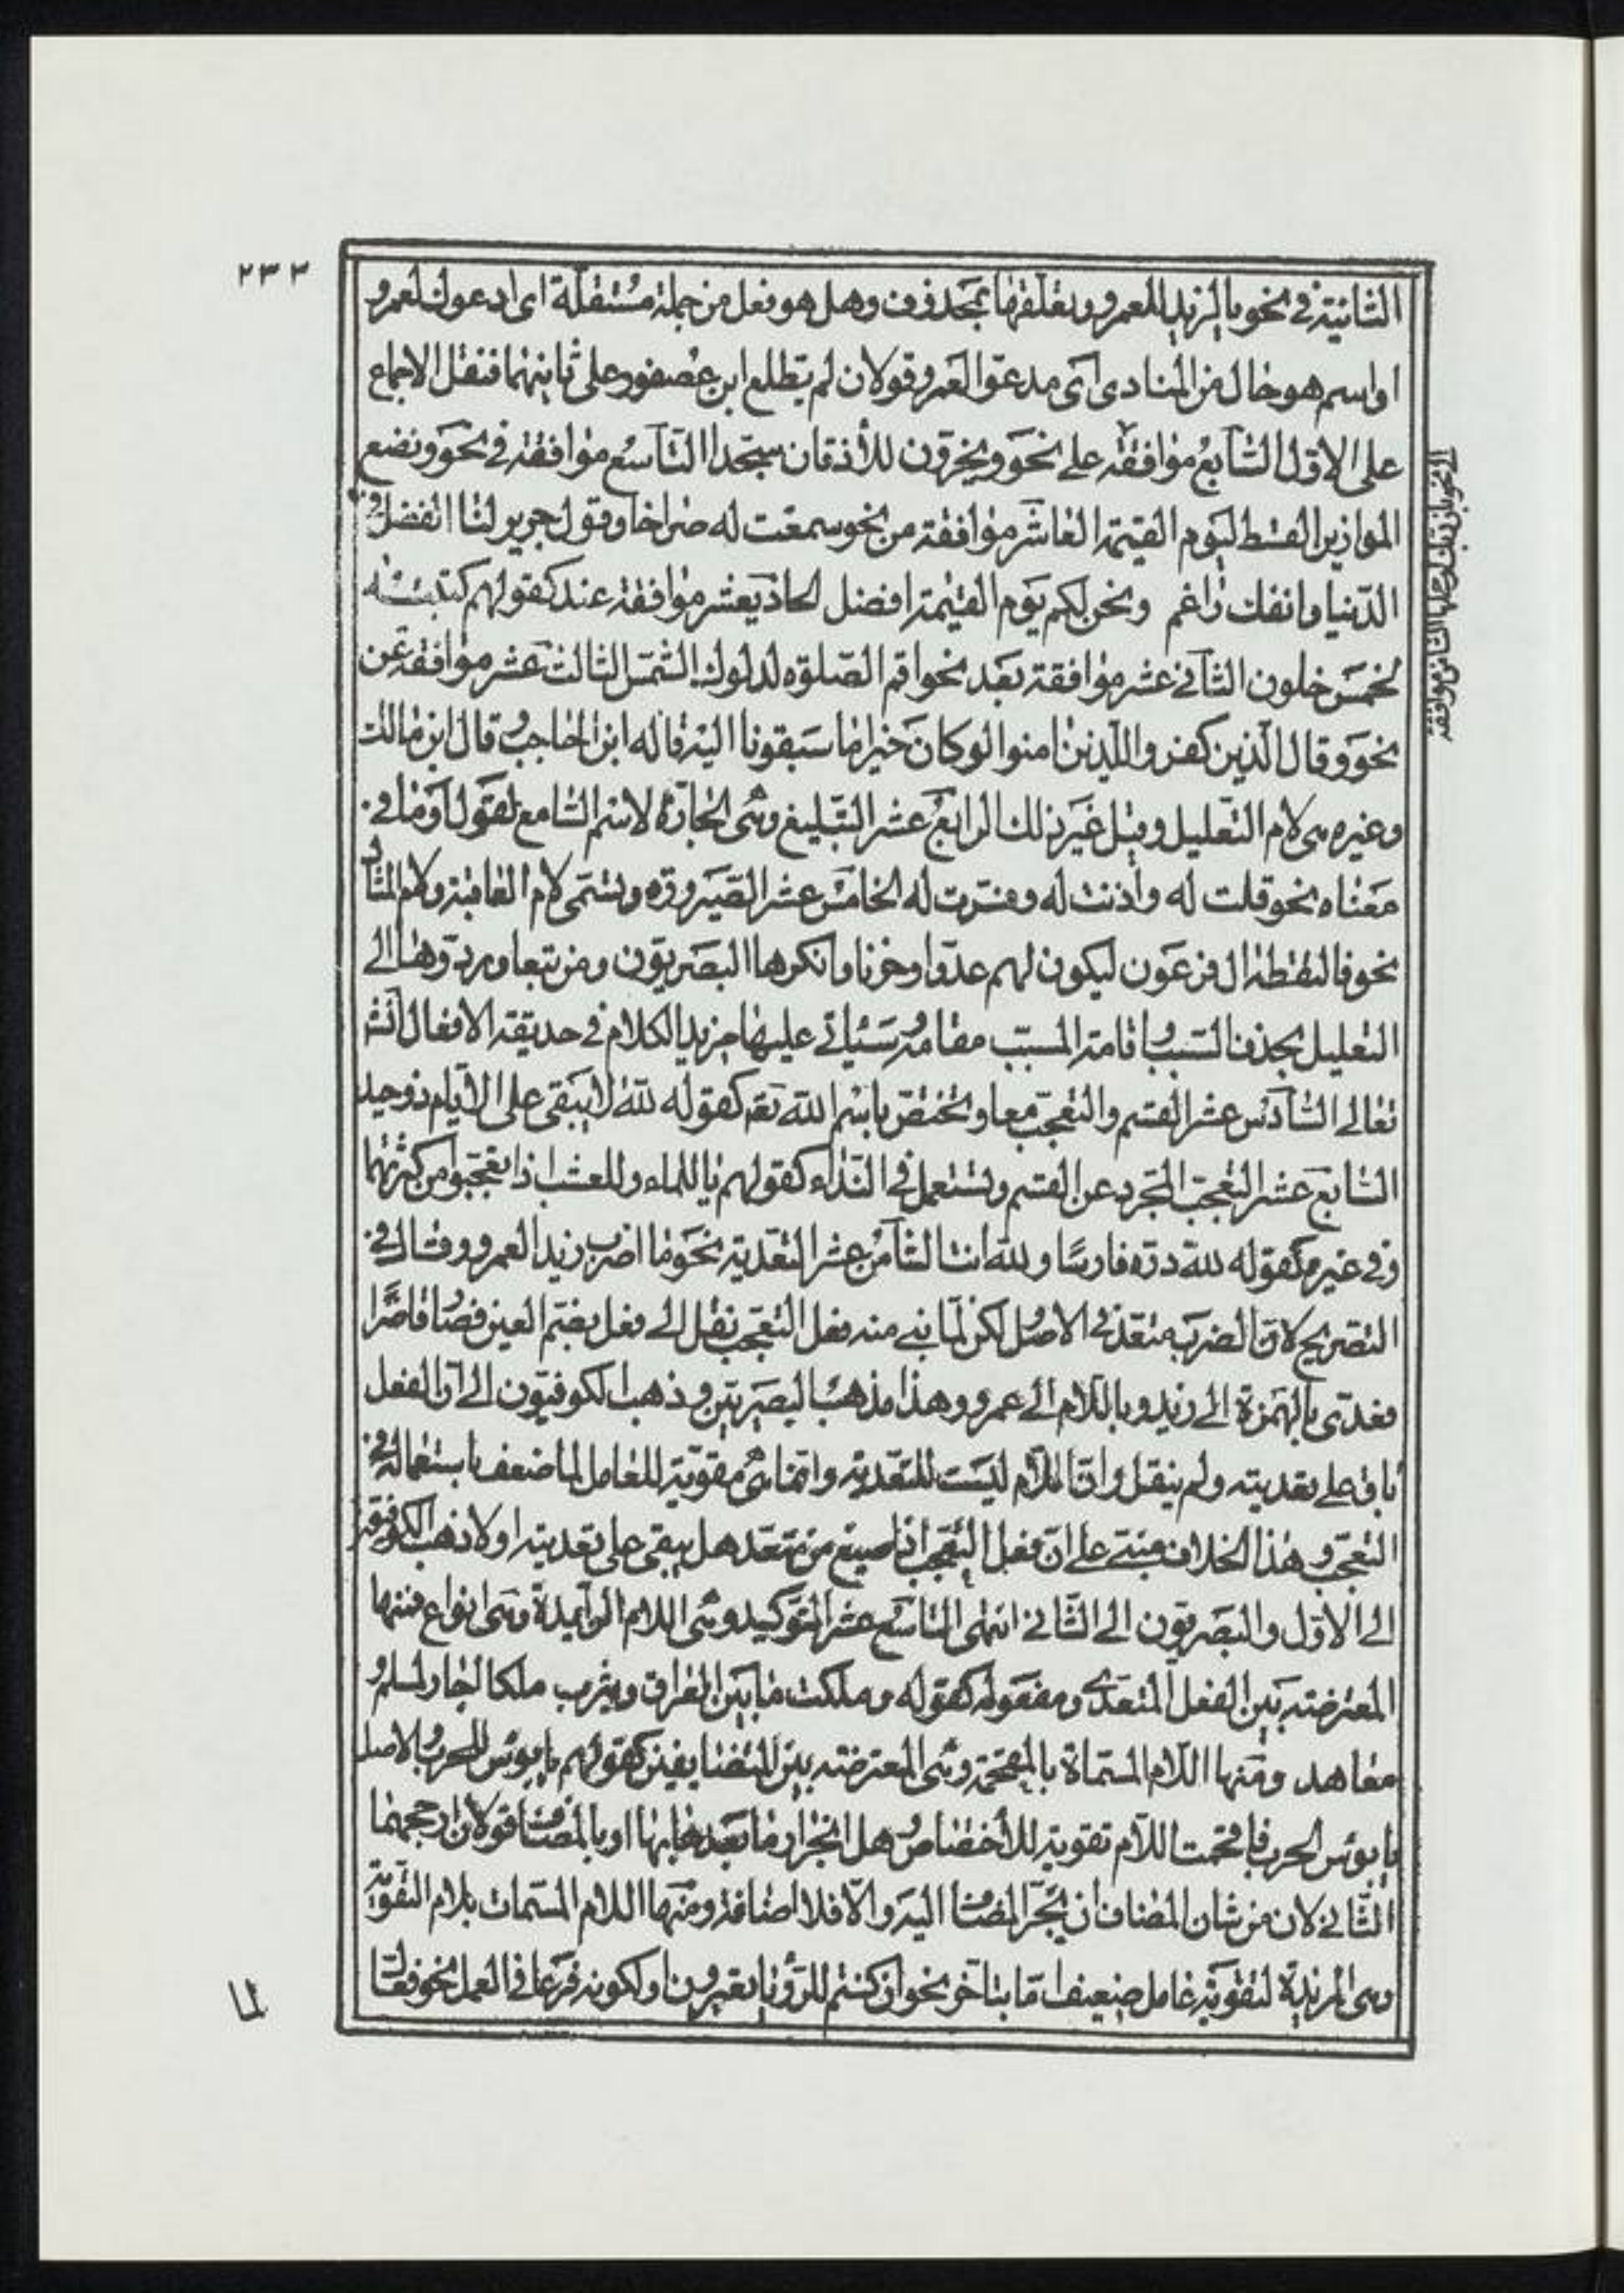 ٢٣٣
الثانية في نحو يا لزيد للعمرو وتعلقها بمحذوف وهل هو فعل من جملة مستقلة اى ادعوك لعمرو
او اسم هو حال من المنادى اى مدعوا لعمرو قولان لم يطلع ابن عصفور على ثانيهما فنقل الاجماع
على الاول الثامن موافقة على نحو ويخرون للأذقان سجدا التاسع موافقة في نحو ونضع
الموازين القسط ليوم القيمة العاشر موافقة من نحو سمعت له صراخا وقول جرير لنا الفضل في
الدنيا وانفك راغم ونحن لكم يوم القيمة افضل الحاديعشر موافقة عند كقولهم كتبته
لخمس خلون الثاني عشر موافقة بعد نحو اقم الصلوة لدلوك الشمس الثالث عشر موافقة عن
نحو وقال الذين كفروا للذين امنوا لو كان خيرا ما سبقونا اليه قاله ابن الحاجب وقال ابن مالك
وغيره هى لام التعليل وقيل غير ذلك الرابع عشر التبليغ وهى الجارة لاسم السامع لقول او ما في
معناه نحو قلت له واذنت له وفسرت له الخامس عشر الصيرورة وتسمى لام العاقبة ولام المئال
نحو فالتقطه ال فرعون ليكون لهم عدوا وحزنا وانكرها البصريون ومن تبعا وردوها الى
التعليل بحذف السبب واقامة المسبب مقامه وسيأتي عليها مزيد الكلام في حديقة الافعال انش
تعالى السادس عشر القسم والتعجب معا وتختص باسم الله تعم كقوله لله لا يبقى على الأيام ذو حيد
السابع عشر التعجب المجرد عن القسم وتستعمل في النداء كقولهم يا للماء وللعشب اذا تعجبوا من كثرتهما
وفى غيره كقوله لله دره فارسًا ولله انت الثامن عشر التعدية نحو ما اضرب زيدا لعمرو وقال في
التصريح لان الضرب متعد في الاصل لكن لما بني منه فعل التعجب نقل الى فعل بضم العين فصار قاصرًا
فعدى بالهمزة الى زيد وباللام الى عمرو وهذا مذهب البصريين وذهب الكوفيون الى ان الفعل
باق على تعديته ولم ينقل وان اللام ليست للتعدية وانما هى مقوية للعامل لما ضعف باستعماله في
التعجب وهذا الخلاف مبنى على ان فعل التعجب اذا صيغ من متعد هل يبقى على تعديته او لا ذهب الكوفيون
الى الأول والبصريون الى الثاني انتهى التاسع عشر التوكيد وهى اللام الزايدة وهى انواع فمنها
المعترضة بين الفعل المتعدى ومفعوله كقوله وملكت ما بين العراق ويثرب ملكا اجار لمسلم و
معاهد ومنها اللام المسماة بالمقحمة وهى المعترضة بين المتضايفين كقولهم يا بؤس للحرب والاصل
يا بؤس الحرب فاقحمت اللام تقوية للأختصاص وهل انجرار ما بعدها بها او بالمضاف قولان ارجحهما
الثاني لان من شان المضاف ان يجر المضاف اليه والا فلا اضافة ومنها اللام المسمات بلام التقوية
وهى المزيدة لتقوية عامل ضعيف اما بتأخر نحو ان كنتم للرؤيا تعبرون او لكونه فرعا في العمل نحو فعال
لما